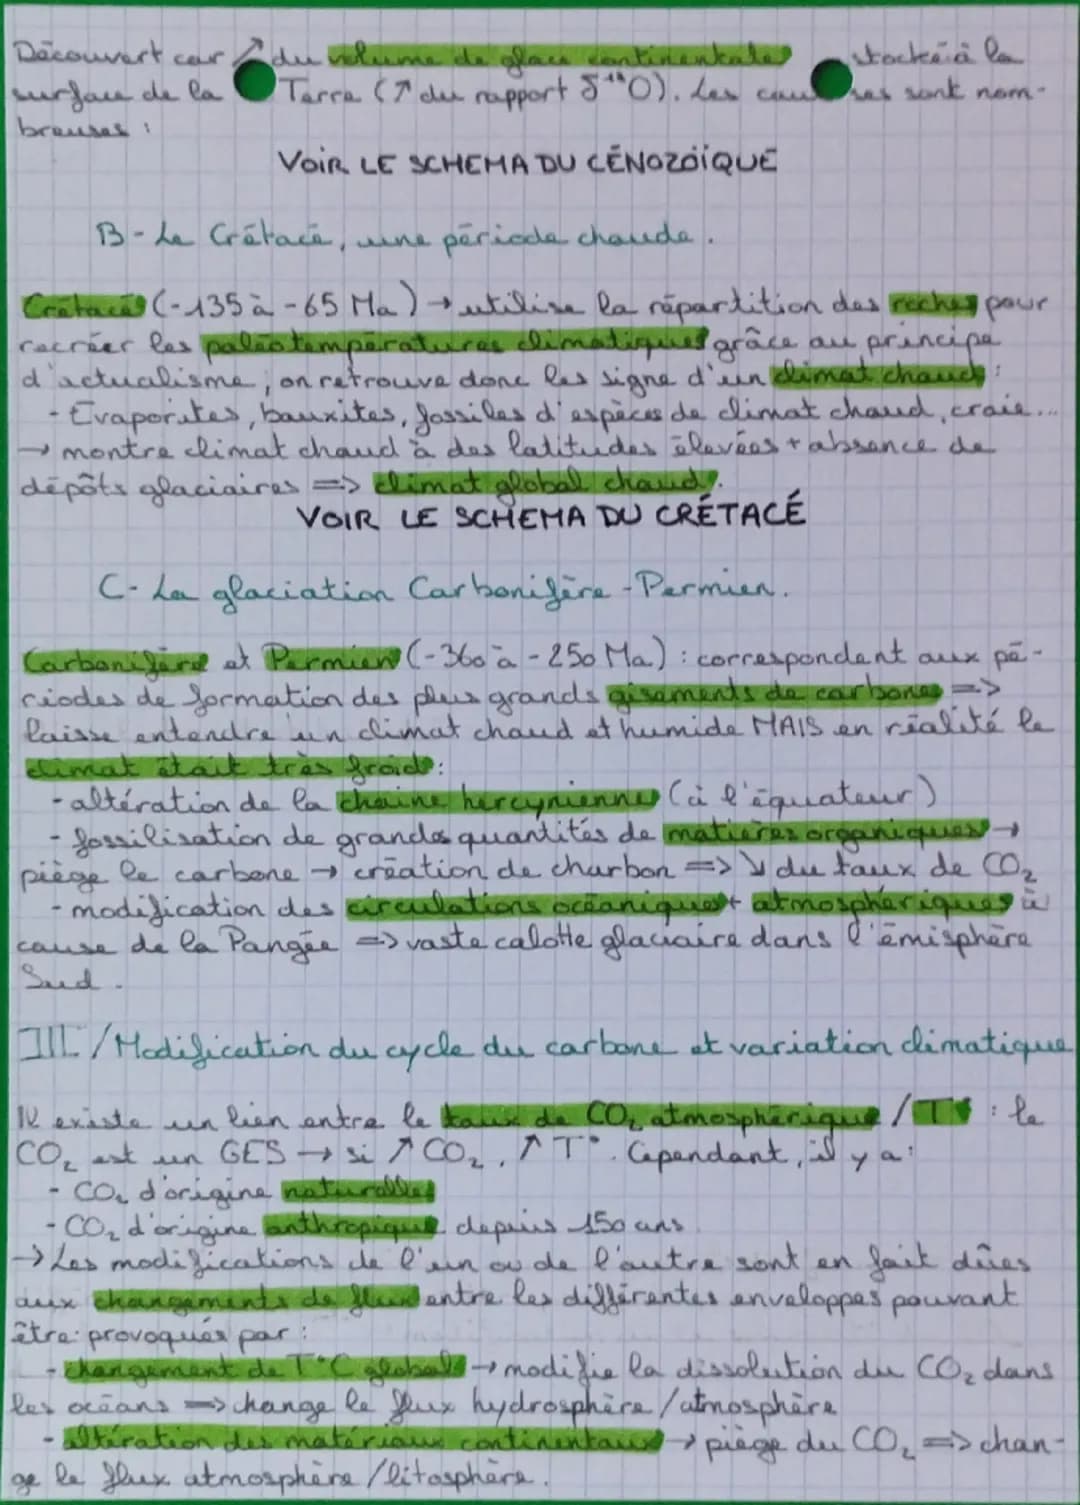 Découvert car ↗ du volume de glace continentales stockée à la
surface de la Terre (↗ du rapport δ¹⁸O). Les causes sont nom-
breuses :
VOIR LE SCHEMA DU CÉNOZOÏQUE
B - Le Crétacé, une période chaude.
Crétacé (-135 à -65 Ma) → utilise la répartition des roches pour
recréer les paléotempératures climatiques grâce au principe
d'actualisme, on retrouve donc les signe d'un climat chaud :
- Évaporites, bauxites, fossiles d'espèces de climat chaud, craie...
→ montre climat chaud à des latitudes élevées + absence de
dépôts glaciaires => climat global chaud.
VOIR LE SCHEMA DU CRÉTACÉ
C - La glaciation Carbonifère - Permien.
Carbonifère et Permien (-360 à -250 Ma) : correspondant aux pé-
riodes de formation des plus grands gisements de carbones =>
laisse entendre un climat chaud et humide MAIS en réalité le
climat était très froid :
- altération de la chaîne hercynienne (à l'équateur)
- fossilisation de grandes quantités de matières organiques →
piège le carbone → création de charbon => ↘ du taux de CO₂
- modification des circulations océaniques + atmosphériques à
cause de la Pangée => vaste calotte glaciaire dans l'émisphère
Sud.
III / Modification du cycle du carbone et variation climatique
Il existe un lien entre le taux de CO₂ atmosphérique / T° : le
CO₂ est un GES → si ↗ CO₂, ↗ T°. Cependant, il y a :
- CO₂ d'origine naturelles
- CO₂ d'origine anthropique depuis 150 ans
→ Les modifications de l'un ou de l'autre sont en fait dûes
aux changements de flux entre les différentes enveloppes pouvant
être provoqués par :
- changement de T°C globale → modifie la dissolution du CO₂ dans
les océans => change le flux hydrosphère / atmosphère
- altération des matériaux continentaux → piège du CO₂ => chan-
ge le flux atmosphère / litosphère.